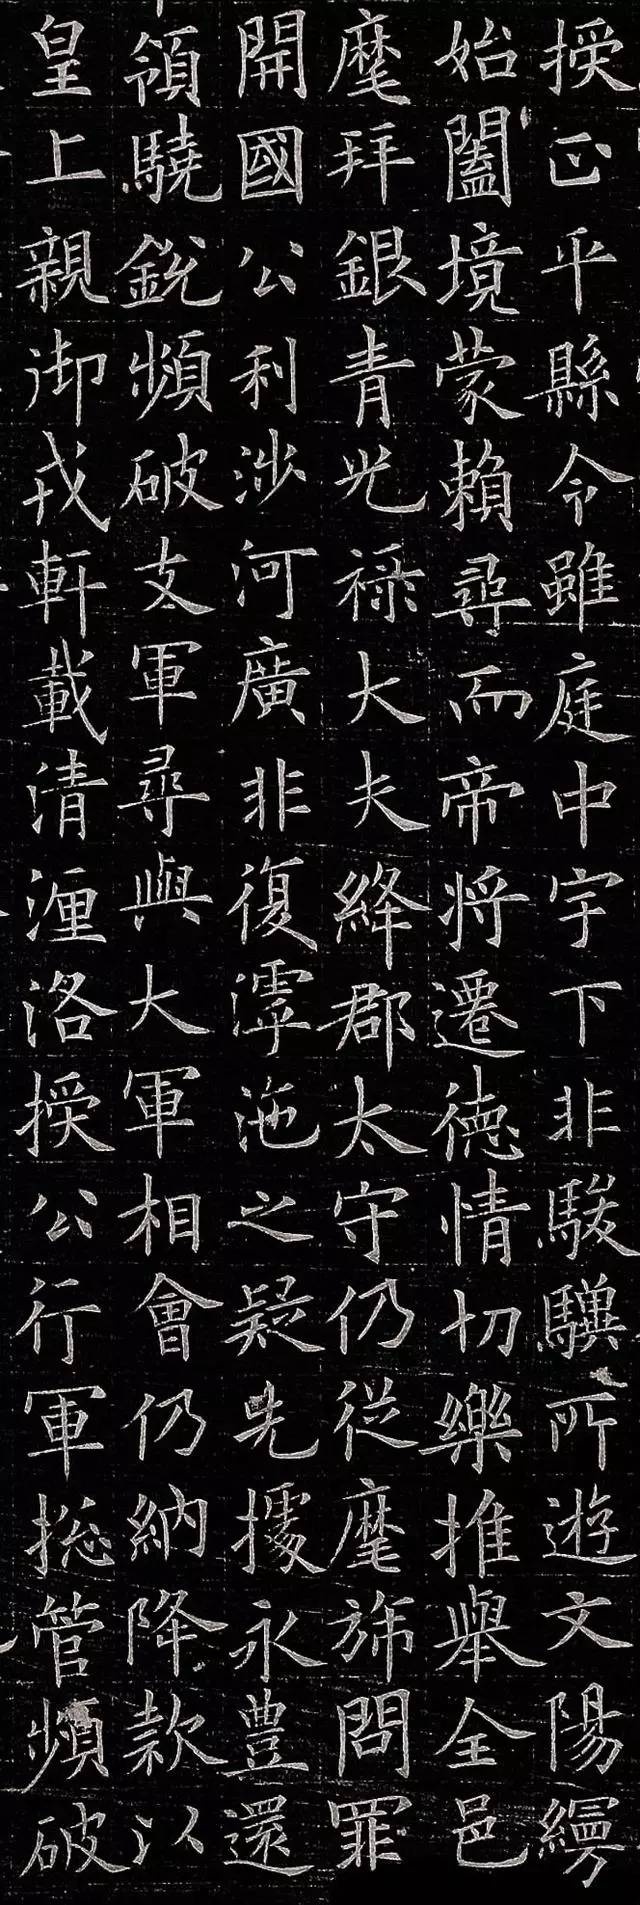 授正平縣令雖庭中宇下非駿驥所遊文陽纔
始闔境蒙賴尋而帝將遷德情切樂推舉全邑
麾拜銀青光祿大夫絳郡太守仍從麾旆問罪
開國公利涉河廣非復滹沲之疑先據永豊還
領驍銳頻破支軍尋與大軍相會仍納降款以
皇上親御戎軒載清湹洛授公行軍揔管頻破